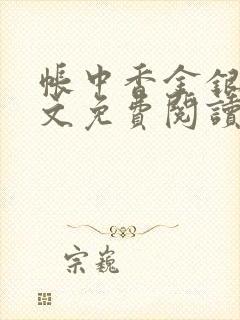 帳中香金銀
文免費閱讀
宗巍